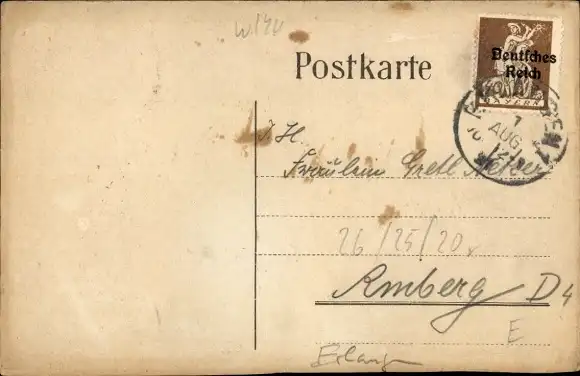 W/24
Postkarte
Deutsches
Reich
BAYERN
7
AUG
I. H.
Fräulein Gretl
26/25/20
Amberg D 4
E
Erlangen